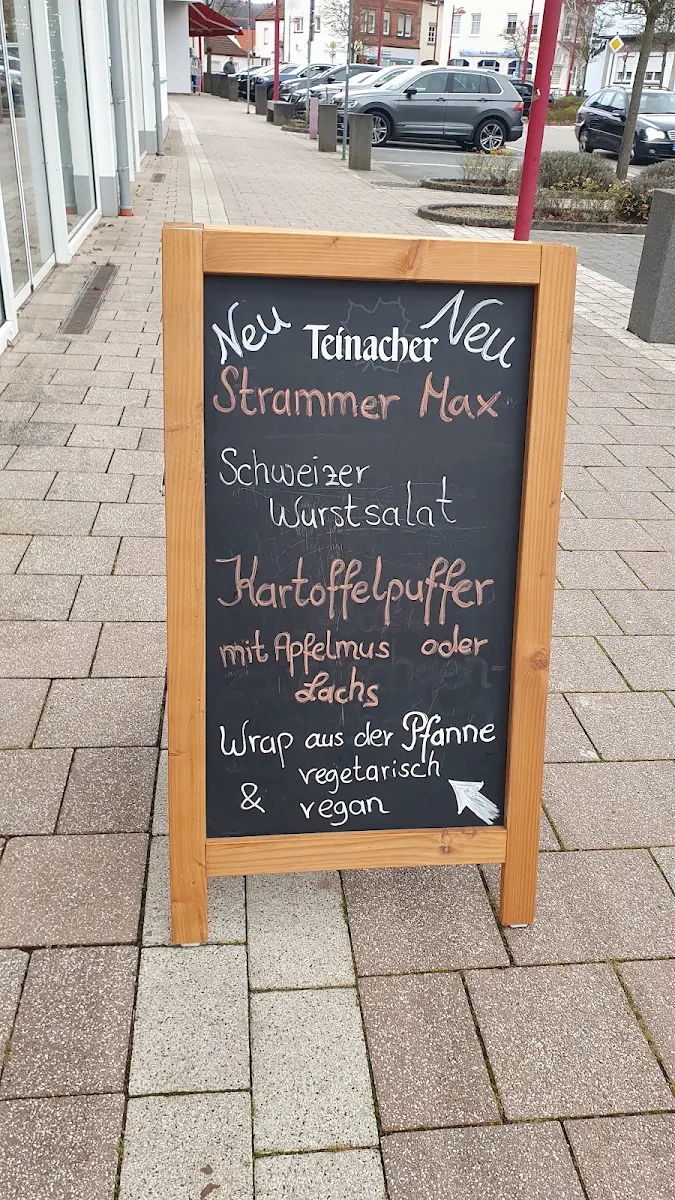 Neu Teinacher Neu
Strammer Max
Schweizer
Wurstsalat
Kartoffelpuffer
mit Apfelmus oder
Lachs
Wrap aus der Pfanne
vegetarisch
& vegan